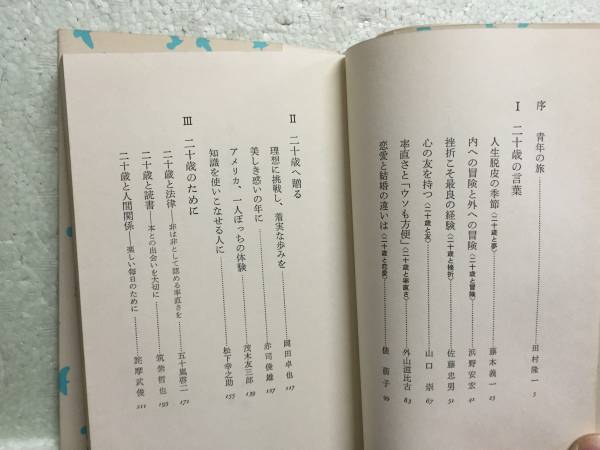 序 青年の旅 田村隆一 5
Ⅰ 二十歳の言葉
人生脱皮の季節〈二十歳と夢〉 藤本義一 23
内への冒険と外への冒険〈二十歳と冒険〉 浜野安宏 41
挫折こそ最良の経験〈二十歳と挫折〉 佐藤忠男 51
心の友を持つ〈二十歳と友〉 山口崇 67
率直さと「ウソも方便」〈二十歳と率直さ〉 外山滋比古 83
恋愛と結婚の違いは〈二十歳と恋愛〉 俵萠子 99
Ⅱ 二十歳へ贈る
理想に挑戦し、着実な歩みを 岡田卓也 117
美しき惑いの年に 赤司俊雄 127
アメリカ、一人ぼっちの体験 茂木友三郎 139
知識を使いこなせる人に 松下幸之助 155
Ⅲ 二十歳のために
二十歳と法律——非は非として認める率直さを 五十嵐啓二 171
二十歳と読書——本との出会いを大切に 筑紫哲也 193
二十歳と人間関係——楽しい毎日のために 詫摩武俊 211